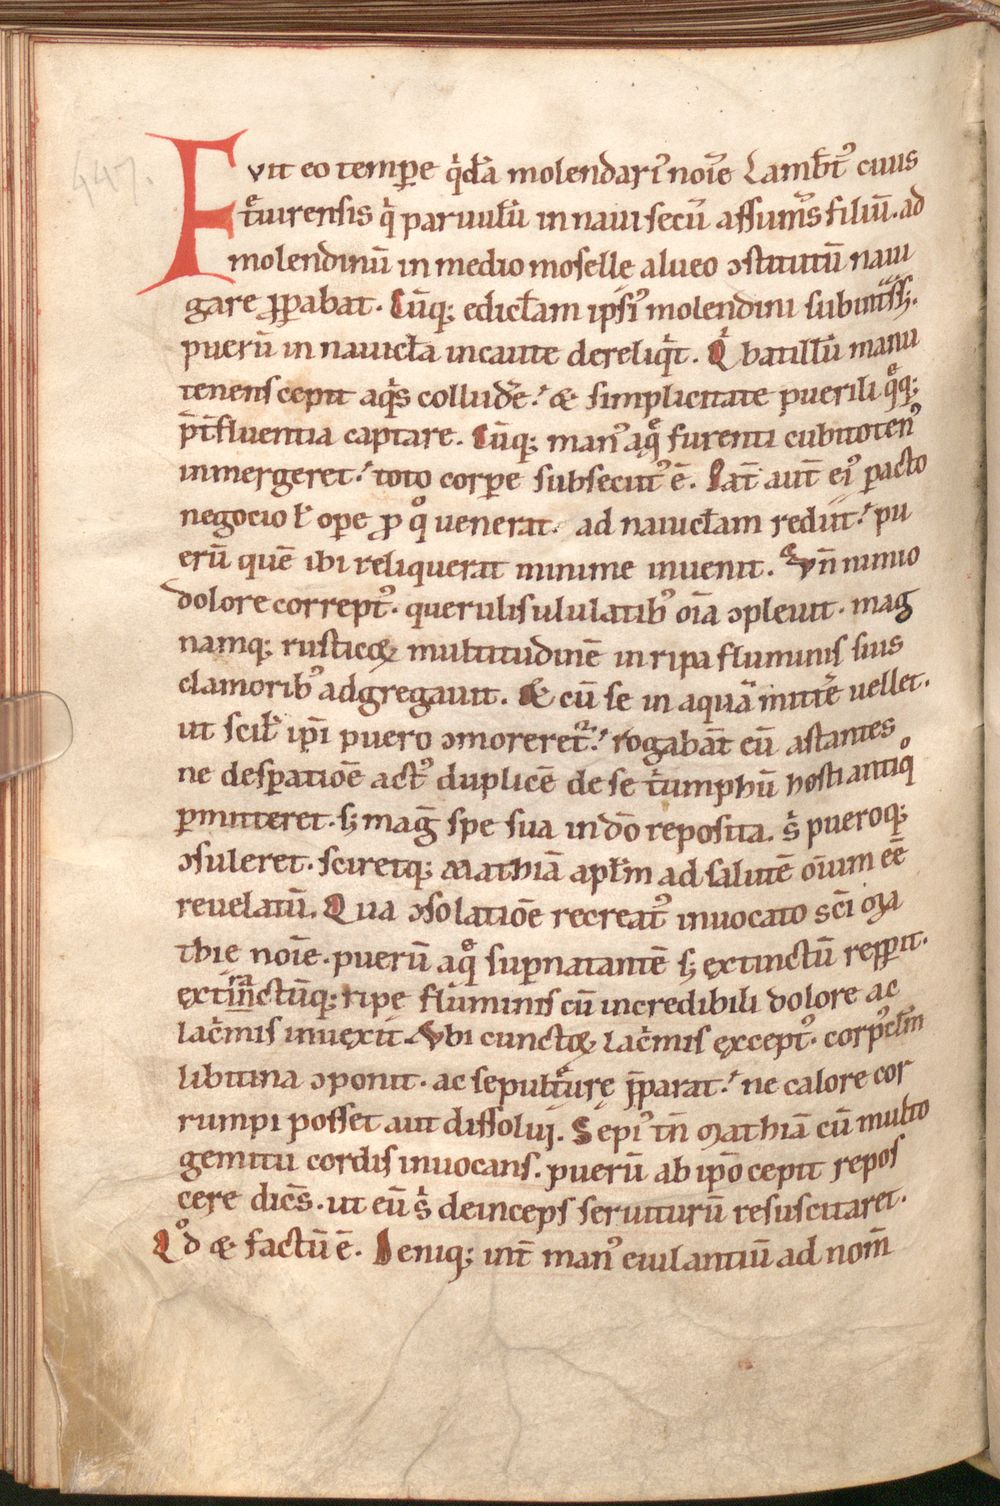 447.
Fvit eo tempe q̓dā molendari᷒ noīe Lamb̄t᷒ ciuis
t̓uirensis q̓ paruulū in naui secū assum̄s filiū. ad
molendinū in medio moselle alueo ɔstitutū naui
gare ꝓpabat. Cūq; edictam ipsi᷒ molendini subintss&.
puerū in nauicl̄a incaute dereliq̓t. Q̓ batillū manu
tenens cepit aq̓s collid̓e. & simplicitate puerili q̊q;
p̄t̄fluentia captare. Cūq; man᷒ aq̊ furenti cubitoten᷒
inmergeret. toto corpe subsecut᷒ ē. Pat̄ aut̄ ei᷒ pacto
negocio ł ope ꝓ q̊ uenerat. ad nauicl̄am rediit. pu
erū quē ibi reliquerat minime inuenit. Vn̄ nimio
dolore corrept᷒. querulis ululatib᷒ oīa ɔpleuit. mag
namq; rusticoꝝ multitudinē in ripa fluminis suis
clamorib᷒ adgregauit. & cū se in aquā mitt̄e uellet.
ut scil̄ ip̄i puero ɔmoreret᷑. rogabāt eū astantes
ne despatioē act᷒ duplicē de se t̓umphū hosti antiq̊
pmitteret. s; maḡ spe sua in dō reposita. s̓ pueroq;
ɔsuleret. sciretq; Mathiā apl̄m ad salutē oīum eē
reuelatū. Qua ɔsolatioē recreat᷒ inuocato sc̄i Ma
thie noīe. puerū aq̊ supnatantē s; extinctū repperit.
extinctūq; ripe fluminis cū incredibili dolore ac
lac̓mis inuexit. Vbi cunctoꝝ lac̓mis except᷒. corp᷒cl̄m
libitina ɔponit. ac sepult̓ure p̄parat. ne calore cor
rumpi posset aut dissolui. Sepi᷒ tn̄ Mathiā cū multo
gemitu cordis inuocans. puerū ab ip̄o cepit repos
cere dicēs. ut eū s̓ deinceps seruiturū resuscitaret.
Q̊d & factū ē. Deniq; int̄ man᷒ eiulantiū ad nom̄